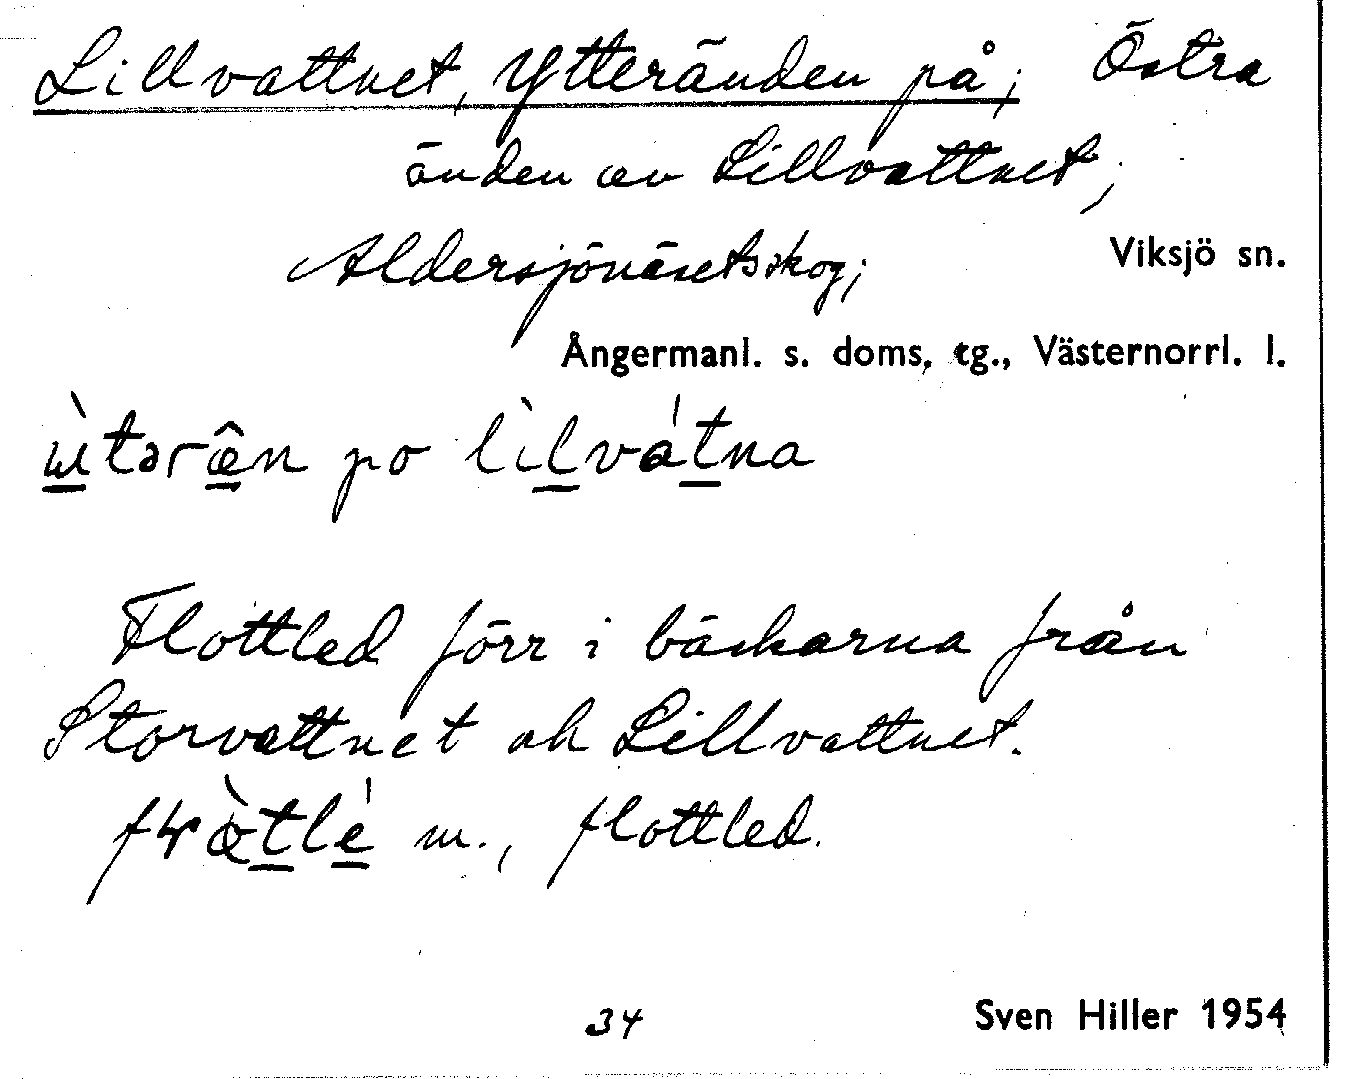 Lillvattnet, Ytteränden på; Östra
änden av Lillvattnet;
Aldersjönäsetsskog; Viksjö sn.
Ångermanl. s. doms. tg., Västernorrl. l.
po
Flottled förr i bäckarna från
Storvattnet ock Lillvattnet.
m., flottled.
34 Sven Hiller 1954